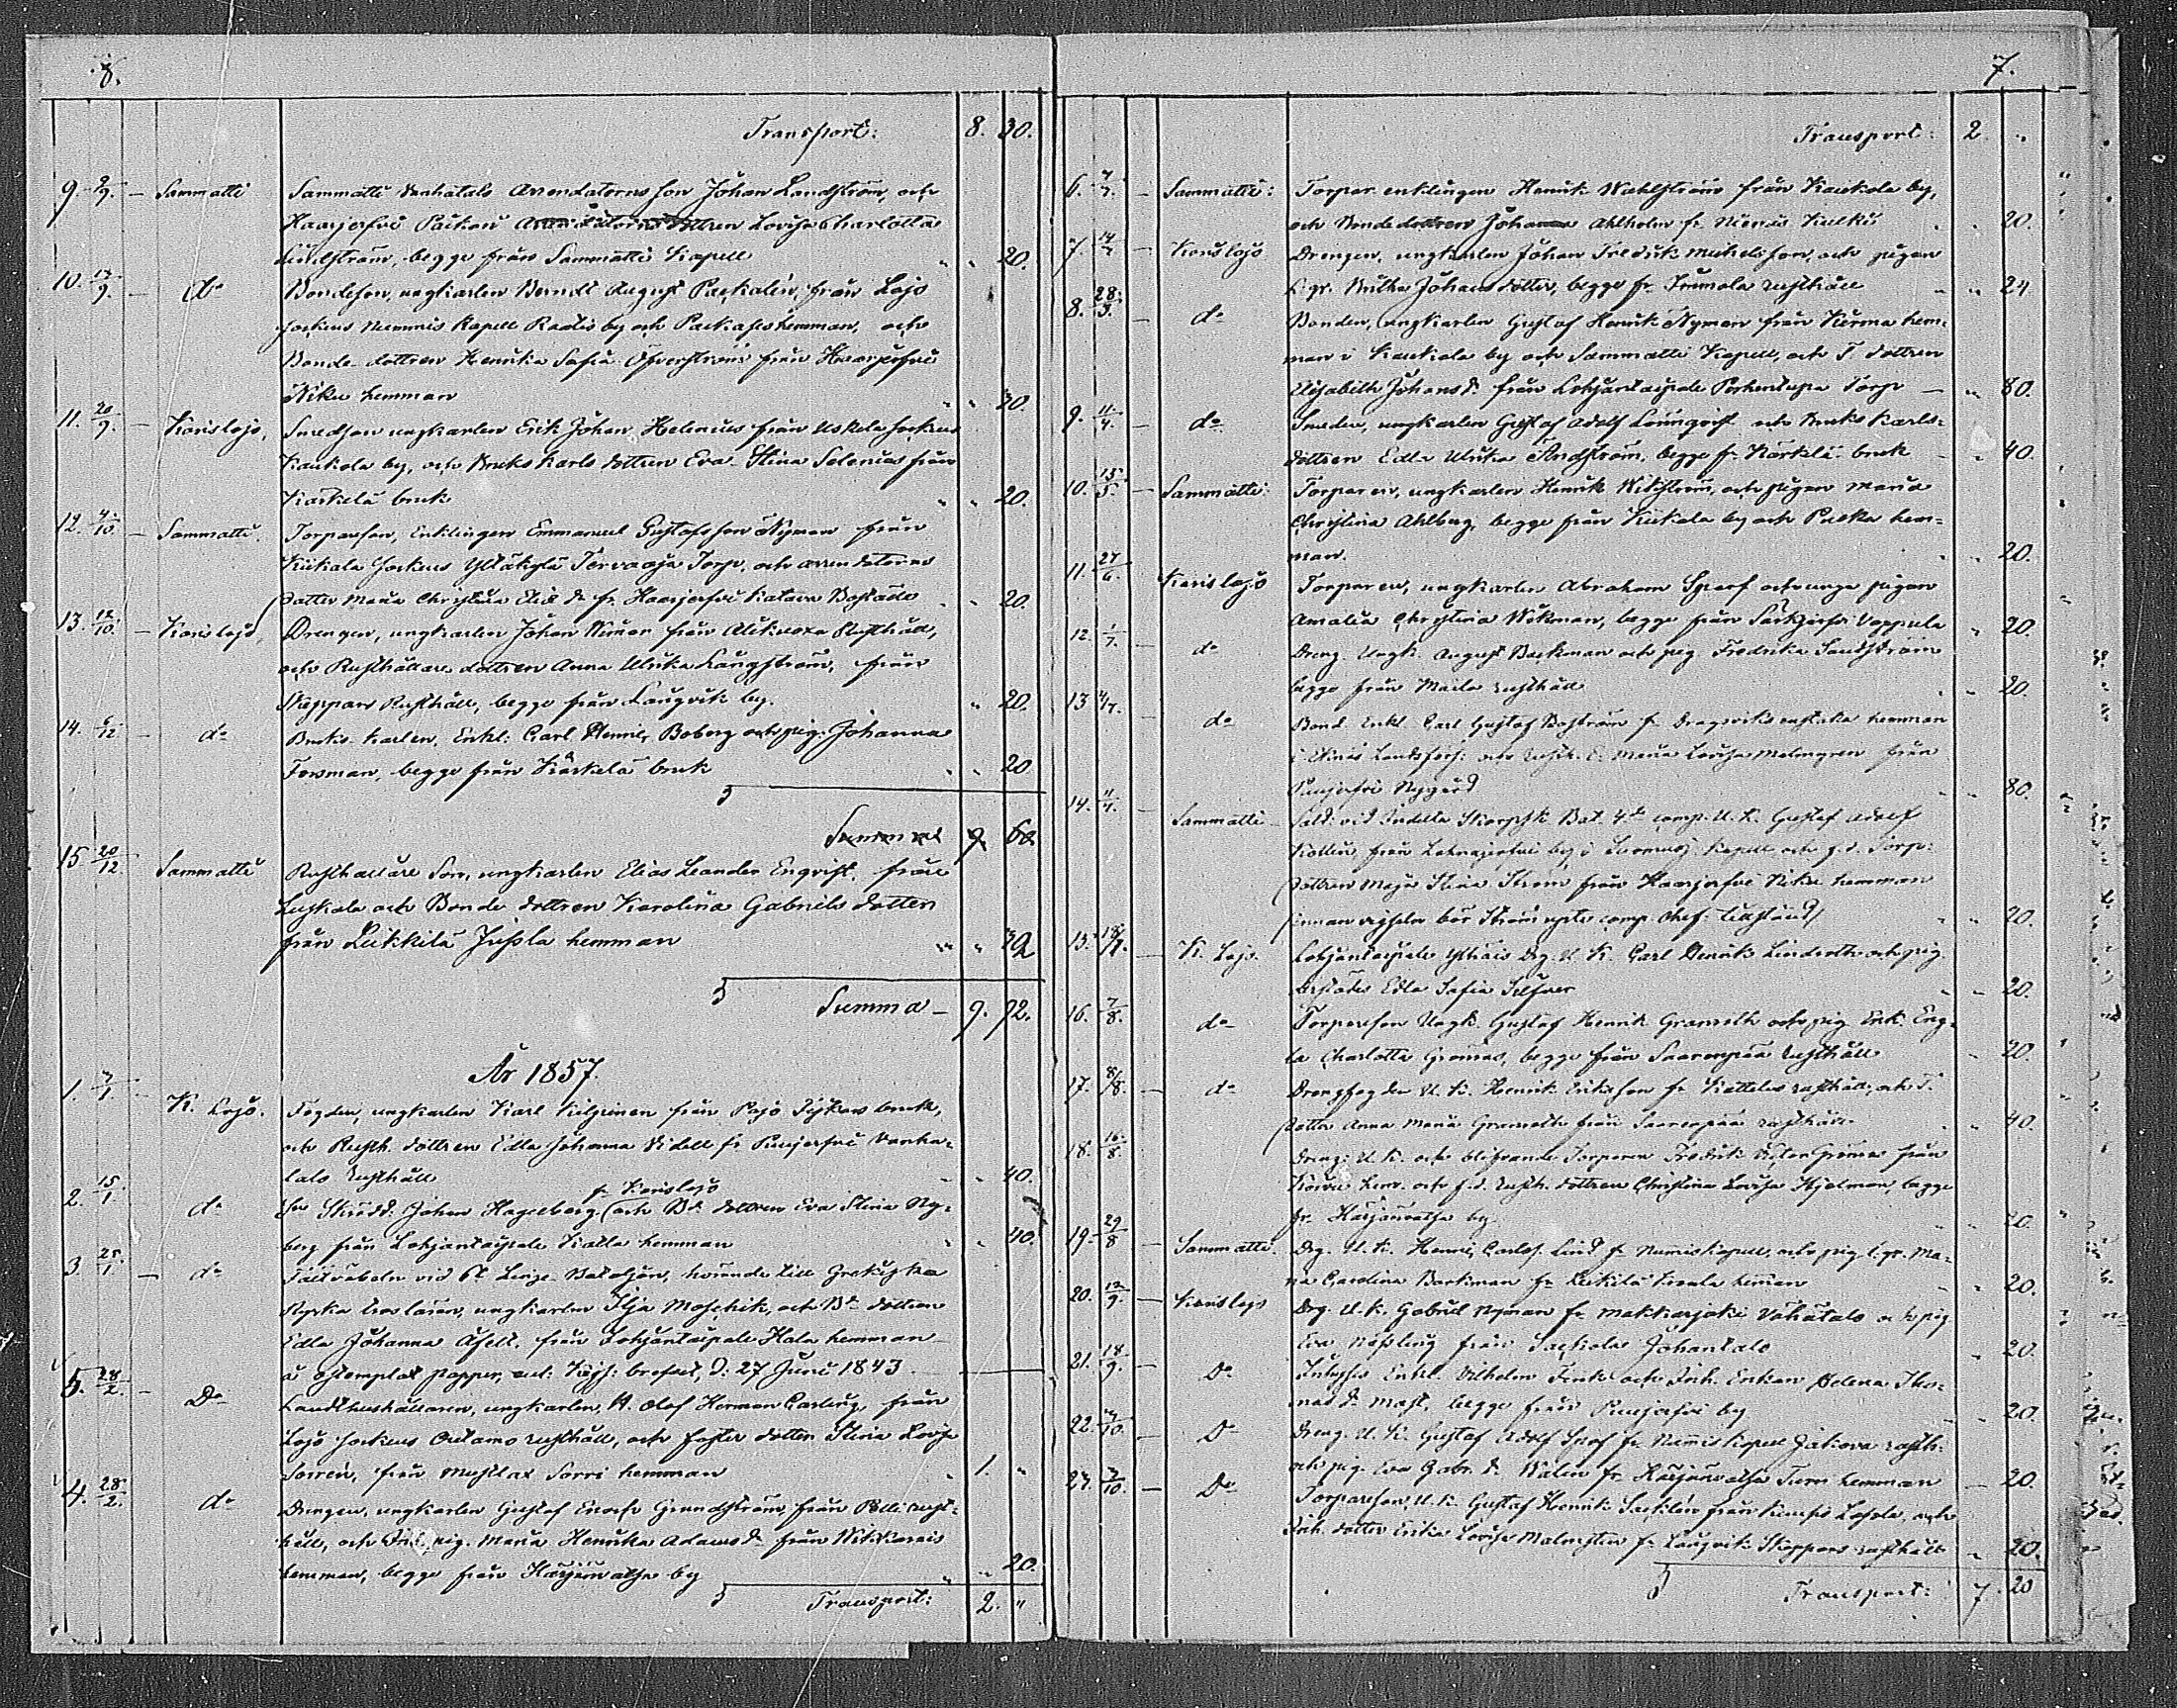 8.
Transport: 8. 30.
9. 9/9. — Sammatti Sammatti Vanhatalo Arrendatorns son Johan Landström, och
Haarjerfvi Paikari dottren Lovisa Charlotta
Lindström, begge från Sammatti Kapell " " 20.
10. 17/9. — do Bondeson, ungkarlen Berndt August Packalén, från Lojo
sockens Nummis Kapell Raatis by och Packalas hemman, och
Bonde dottren Henrika Sofia Öfverström från Haarjerfvi
Niku hemman " " 30.
11. 20/9. — Karislojo, Smedson ungkarlen Erik Johan Helenius från Uskela socken
Kaukola by, och Bruks Karls dottren Eva Stina Selenius från
Kärkelä bruk " " 20.
12. 4/10. — Sammatti. Torpareson, Enklingen Emmanuel Gustafsson Nyman från
Kiikala sockens Yltäkylä Tervaoja Torp, och arrendatorns
dotter Maria Christina Elias dr fr. Haarjerfvi Katava Bostade " " 20.
13. 12/10. — Karislojo, Drengen, ungkarlen Johan Wiman från Rusthåll,
och Rusthållare dottren Anna Ulrika Långström, från
Skeppars Rusthåll, begge från Långvik by. " 20.
14. 6/12 — do Bruks karlen, Enkl: Carl Henric Boberg och pig. Johanna
Forsman, begge från Kärkelä bruk " " 20
Summa 9. 60
15 20/12 Sammatti Rusthållare Son, ungkarlen Elias Leander Enqvist, från
Luskala och Bonde dottren Karolina Gabriels dotter
från Leikkilä Jussila hemman " " 32
Summa — 9. 92.
År 1857.
1. 7/1. — K. Lojo. Fogden, ungkarlen Karl från Pojo Fiskars bruk,
och Rusth. dottren Edla Johanna Videll fr Puujerfvi Vanha-
talo Rusthåll " " 40.
fr Karislojo
2. 15/1. do Sn Skrädd. Johan Hagelberg (och Bd dottren Eva Stina Ny-
berg från Lohjantaipale Kalla hemman " " 40.
3. 25/1. — do Fältväbeln vid Linje Bataljon, hörande till Grekiska
kyrka troslären, ungkarlen Ilja Moschik, och Bd dottren
Edla Johanna Åfelt, från Lohjantaipale Hala hemman
å ostemplat papper, enl: Kejs: brefvet D: 27 Junii 1843 —
5. 28/2. — Do Landthushållaren, ungkarlen, H. Olof Herman Carling, från
Lojo sockens Outamo rusthåll, och foster dotter Stina Lovisa
Sorrén, från Mustlax Sorri hemman " 1. "
4. 28/2. do Drengen, ungkarlen Gustaf Enoch Grundström, från Pelli rust-
håll, och Inh. pig. Maria Henrika Adams dr från
hemman, begge från Härjänvatsa by " " 20.
Transport: 2. "
7.
Transport: 2 "
6. 4/7. — Sammatti: Torpar enklingen Henrik Wahlström från Kaukola by,
och Bonde dottren Johanna Ahlholm fr. Niemis " " 20.
7. 14/7 — Karislojo Drengen, ungkarlen Johan Fredrik Michelsson, och pigan
L. gr. Johans dotter, begge fr. Immola rusthåll " " 24
8. 28/3. — do Bonden, ungkarlen Gustaf Henrik Nyman från hem-
man i Kaukola by och Sammatti Kapell, och T dottren
Elisabeth Johans dr från Lohjantaipale Torp — " 80.
9. 11/4. — do Smeden, ungkarlen Gustaf Adolf Lönnqvist och Bruks Karls-
dottren Edla Ulrika Sandström, begge fr. Kärkelä bruk — " 40.
10. 15/5. — Sammatti: Torparen, ungkarlen Henrik Wikström, och pigan Maria
Christina Ahlberg, begge från Kiikala by och hem-
man. " " 20.
11. 27/6. — Karislojo Torparen, ungkarlen Abraham Sparf och unga pigan
Amalia Christina Wikman, begge från Särkjerfvi Vappula " 20.
12. 1/7. — do Dreng. Ungk. August Backman och pig Fredrika Sandström
begge från Maila rusthåll " " 20.
13 4/7. — do Bond. Enkl. Carl Gustaf Boström fr Dragsviks hemman
i Ekenäs Landsförs: och Maria Lovisa Malmgren från
Puujerfvi Nygård " " 80.
14. 11/7. — Sammatti Sold: vid Indelta Skarpsk. Bat. 4de comp. U. K. Gustaf Adolf
Kollin från by i Kapell och Torp:
dottren Maja Stina Ström från Haarjerfvi Niku hemman
" " 20.
15. 18/7. — K. Lojo. Lohjantaipale Drg. U. K. Carl Henrik Linderoth och pig
Edla Sofia Silfver " " 20.
16. 7/8. do Torpareson Ungk. Gustaf Henrik Granroth och pig Enk. Eng-
la Charlotta Grönroos, begge från Saarenpää rusthåll — 20.
17. 8/8. — do Drengfogden U. K. Henrik Eriksson fr Kattelus rusthåll, och T.
dotter Anna Maria Granroth från Saarenpää rusthåll " " 40.
18. 16/8. Dreng: U. K. och blifvande Torparen Fredrik Victor Grönroos från
hem. och f.d. rusth. dottren Christina Lovisa Hjelman, begge
fr. Härjänvatsa by " 20.
19. 29/8 — Sammatti. Drg. U. K. Henric Carls. Lind fr Nummis Kapell, och pig l.gr. Ma-
ria Carolina Backman fr Leikkilä hemman " 20.
20. 12/9. — Karislojo Drg. U. K. Gabriel Nyman fr. Makkarjoki Vähätalo och pig
Eva Nössling från Suikola Johantalo " 20.
21. 18/9. — Do Inhyses Enkl. Vilhelm Fink och Inh. Enkan Helena Tho-
mas dr begge från Puujerfvi by " 20.
22. 4/10. — Do Dreng. U. K. Gustaf Adolf fr Nummis Kapell Jakova rusth.
och pig. Eva Gabr. dr Walin fr Härjänvatsa hemman — 20.
23. 4/10. — Do Torpareson, U. K. Gustaf Henrik från och
Inh. dotter Erika Lovisa Malmsten fr Långvik Skeppars rusthåll " 20.
Transport: 7. 20